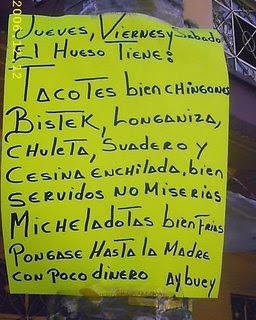 Jueves, Viernes y Sabado
El Hueso Tiene:
Tacotes bien chingones
Bistek, Longaniza,
Chuleta, Suadero y
Cesina enchilada, bien
servidos no miserias
Micheladotas bien frias
Pongase hasta la madre
con poco dinero Ay buey